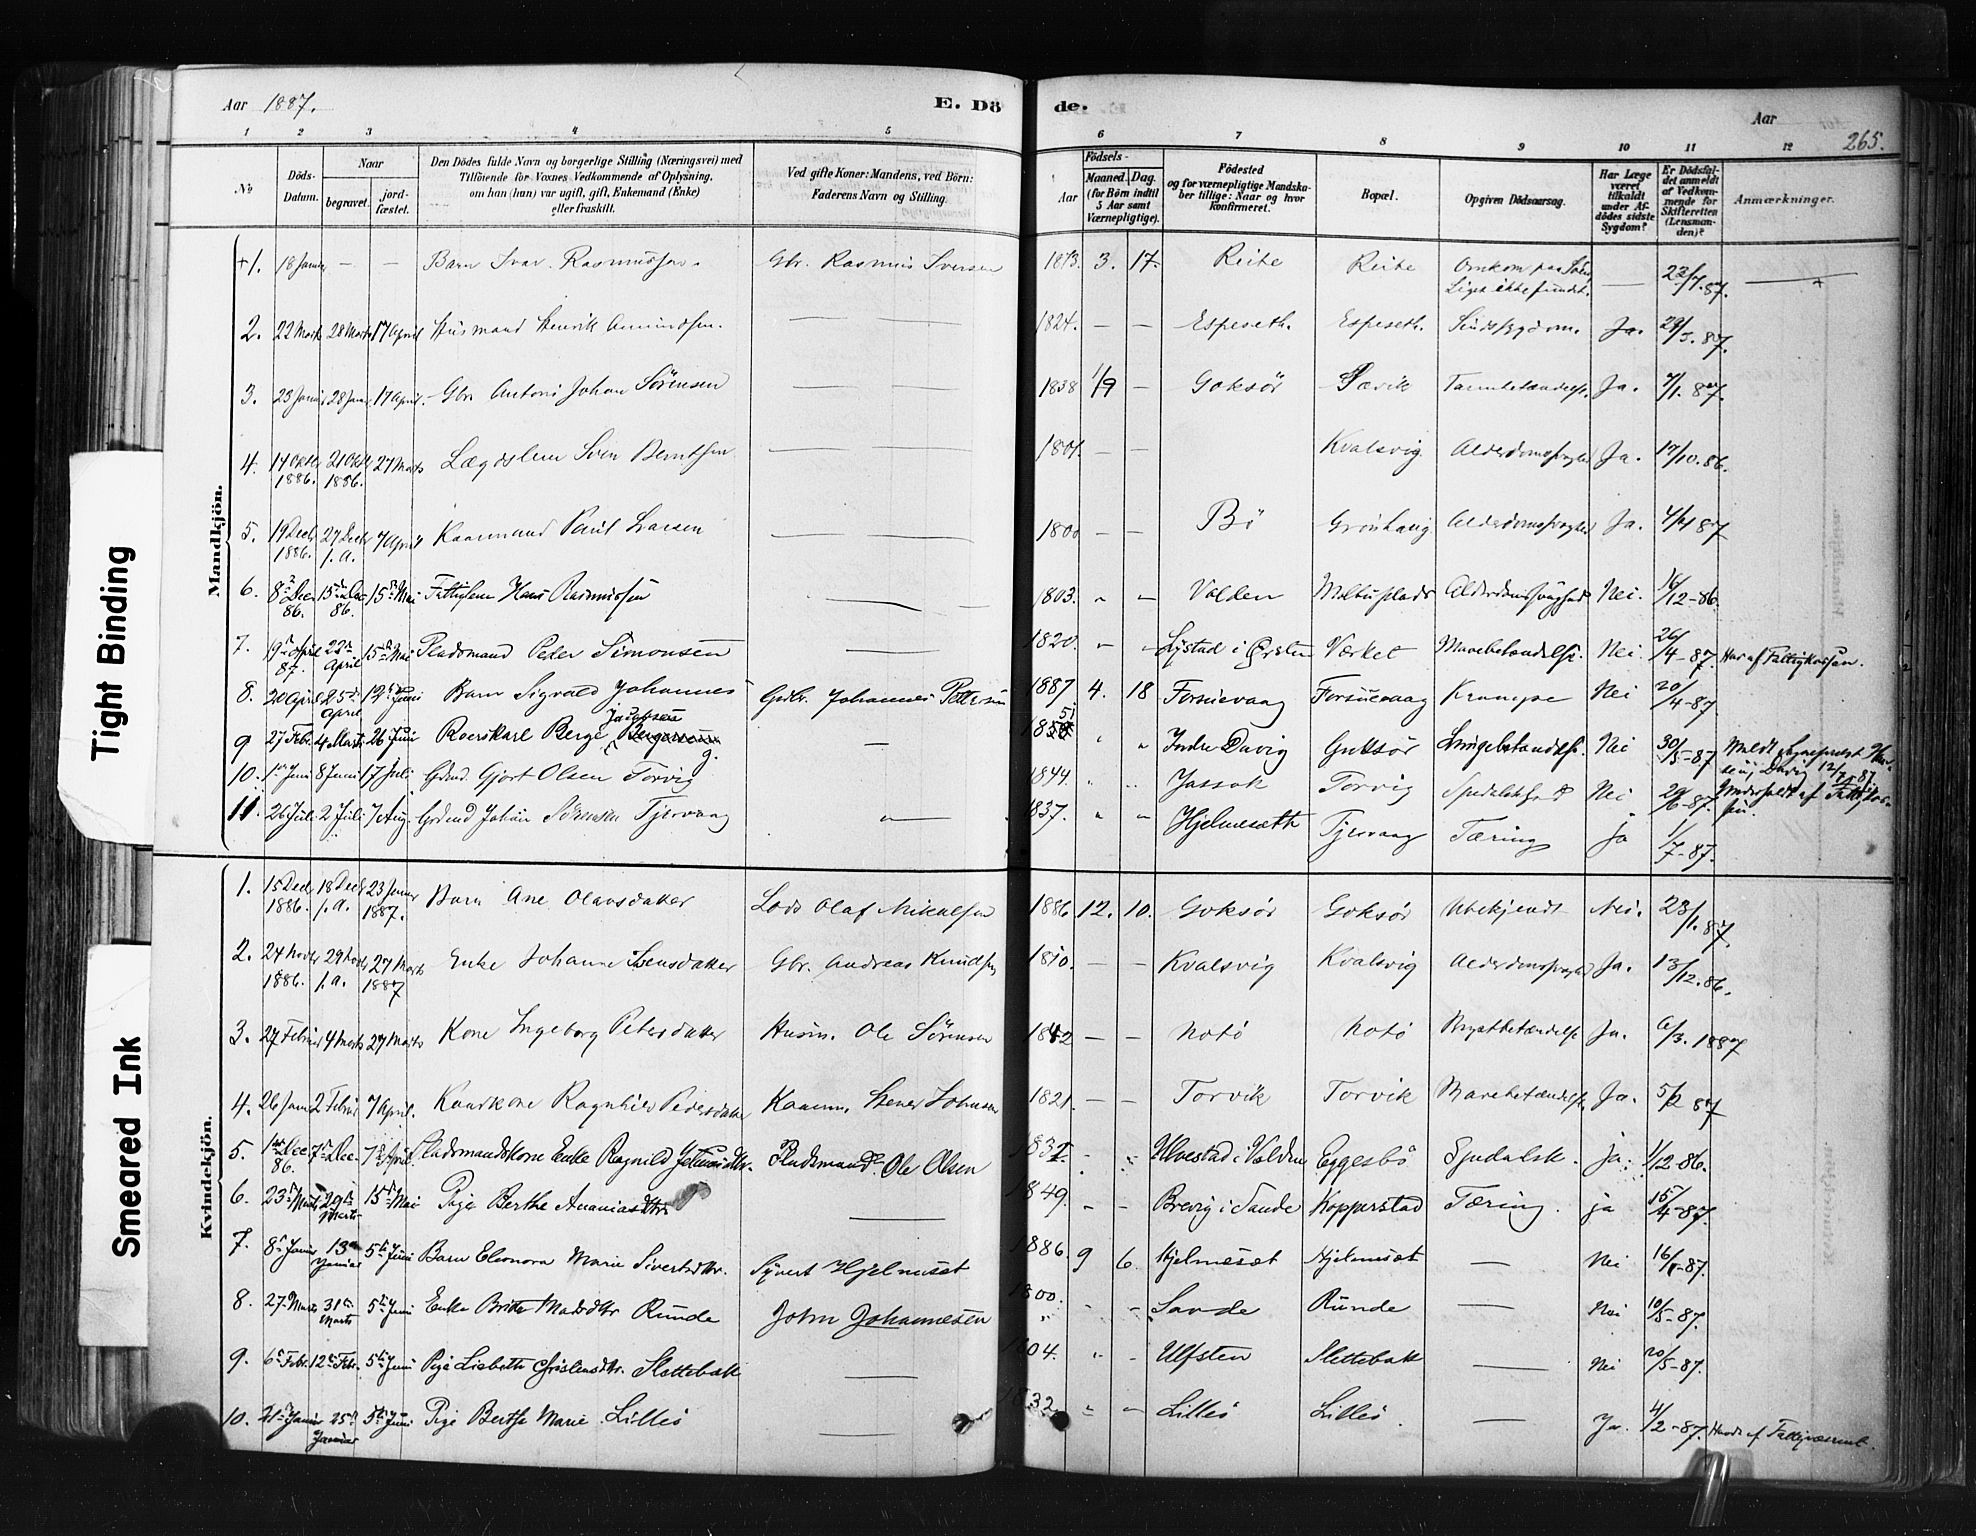 Aar 1887. E. Dö de. Aar
265.
1 2 3 4 5 6 7 8 9 10 11 12
No
Döds-Datum.
Naar
begravet.
jord-fæstet.
Den Dödes fulde Navn og borgerlige Stilling (Næringsvei) med Tilföiende for Voxnes Vedkommende af Oplysning, om han (hun) var ugift, gift, Enkemand (Enke) eller fraskilt.
Ved gifte Koner: Mandens, ved Börn: Faderens Navn og Stilling.
Födsels-
Aar
Maaned. Dag.
(for Börn indtil 5 Aar samt Værnepligtige).
Födested og for værnepligtige Mandskaber tillige: Naar og hvor konfirmeret.
Bopæl.
Opgiven Dödsaarsag.
Har Læge været tilkaldt under Afdödes sidste Sygdom?
Er Dödsfaldet anmeldt af Vedkommende for Skifteretten (Lensmanden)?
Anmærkninger.
Mandkjön.
+1. 18 Januar — — Barn Ivar Rasmussen. Gbr. Rasmus Iversen 1873. 3. 17. Reite Reite Omkom paa Liget ikke fundet. — 22/1.87.
2. 22 Marts 28 Marts 17 April Husmand Henrik Amundsen. — — 1824. — — Espeseth. Espeseth. Sindssygdom. Ja. 87.
3. 23 Januar 28 Januar 17 April Gbr. Antoni Johan Sörensen — — 1838 1/9 — Goksör Sævik Ja. 7/1.87.
4. 14 Oktbr 1886. 21 Okt 1886. 27 Marts Lægdslem Sven Berntsen — — 1801. — — Kvalsvig Alderdomssvaghed Ja. 17/10.86.
5. 19 Decbr 1886. 27 Decbr s.a. 7 April Kaarmand Paul Larsen — — 1800 — — Bö Grönhaug Alderdomssvaghed Ja. 4/1 87
6. 8de Dec 86. 15de Dec 86. 15de Mai Fattiglem Hans Rasmussen — — 1803. " — Volden Moltuplads Alderdomssvaghed Nei. 16/12-86.
7. 19de April 87. 22de April 15de Mai Pladsmand Peder Simonsen — 1820. " — Lystad i Örsten Værket Mavebetændelse. Nei. 26/4-87. Hav af Fattigkassen.
8. 20 April 25de April 12te Juni Barn Sigvald Johannes Gdbr. Johannes Pettersen 1887 4. 18 Forsnevaag Forsnevaag Krampe Nei 20/4-87
9 27 Febr. 4 Marts 26 Juni Roerskarl Berge Jacobsen — 1851 " " Indre Davig Goksör Lungebetændelse. Nei 30/5-87
10. 1ste Juni 8 Juni 17 Juli Gdmd. Gjert Olsen Torvig 1844. " " Jassok Torvig Spedalskhed Nei 20/6-87. Understödt af Fattigkassen.
11. 26 Juli 2 Juli 7 Aug. Grdmd Johan Sörensen Tjervaag — 1837. " " Hjelmesæth Tjervaag Tæring ja 1/7-87.
Kvindekjön.
1. 15 Decbr 1886. 18 Decbr s.a. 23 Januar 1887. Barn Ane Olavsdatter Lods Olaf Mikalsen 1886 12. 10. Goksör Goksör Ubekjendt Nei. 23/1.87
2. 24 Novbr 1886. 29 Novbr s.a. 27 Marts 1887 Enke Johanne Svensdatter Gbr. Andreas Knudsen 1810. — — Kvalsvig Kvalsvig Alderdomssvaghed Ja. 13/12.86.
3. 27 Februar 4 Marts 27 Marts Kone Ingeborg Petersdatter Husm. Ole Sörensen 1842 — — Notö Notö Brystbetændelse Ja. 6/3.1887
4. 26 Januar 2 Februar 7 April. Kaarkone Ragnhild Pedersdatter Kaarm. Johnsen 1821. — — Torvik Torvik Mavebetændelse Ja. 5/2 87
5. 1ste Dec. 86. 7de Dec. 7de April Pladsmandskone Enke Ragnild Pladsmand Ole Olsen Ulvestad i Volden Eggesbö Spedalsk. ja. 1/12-86.
6. 23de Marts 29de Marts 15de Mai Pige Berthe Ananiasdtr. — 1849. " — Brevig i Sande Kopperstad Tæring. ja 15/4-87.
7. 8de Januar 13de Januar 5te Juni Barn Eleonora Marie Sivertsdtr. Syvert Hjelmeset 1886. 9 6. Hjelmesæt Hjelmesæt — Nei 87.
8. 27 Marts 31te Marts 5te Juni Enke Britte Madsdtr Runde John Johannesen 1800. " " Sande Runde — Nei 10/5-87.
9. 6te Febr. 12te Febr. 5te Juni Pige Lisbeth Slettebak — 1804. " " Ulfsten Slettebakk — Nei 20/5-87.
10. 21de Januar 25de Januar 5te Juni Pige Berthe Marie Lilleö — 1832 " — Lilleö Lilleö. — Ja. 4/2-87. af Fattigvæsenet.
Tight Binding
Smeared Ink